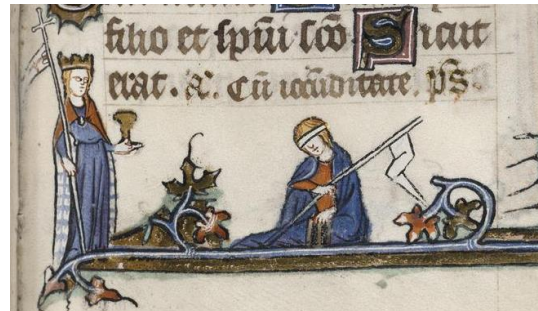 filio et spũi sc̃o Sicut
erat. &. Cũ iocũditate. p̃s.